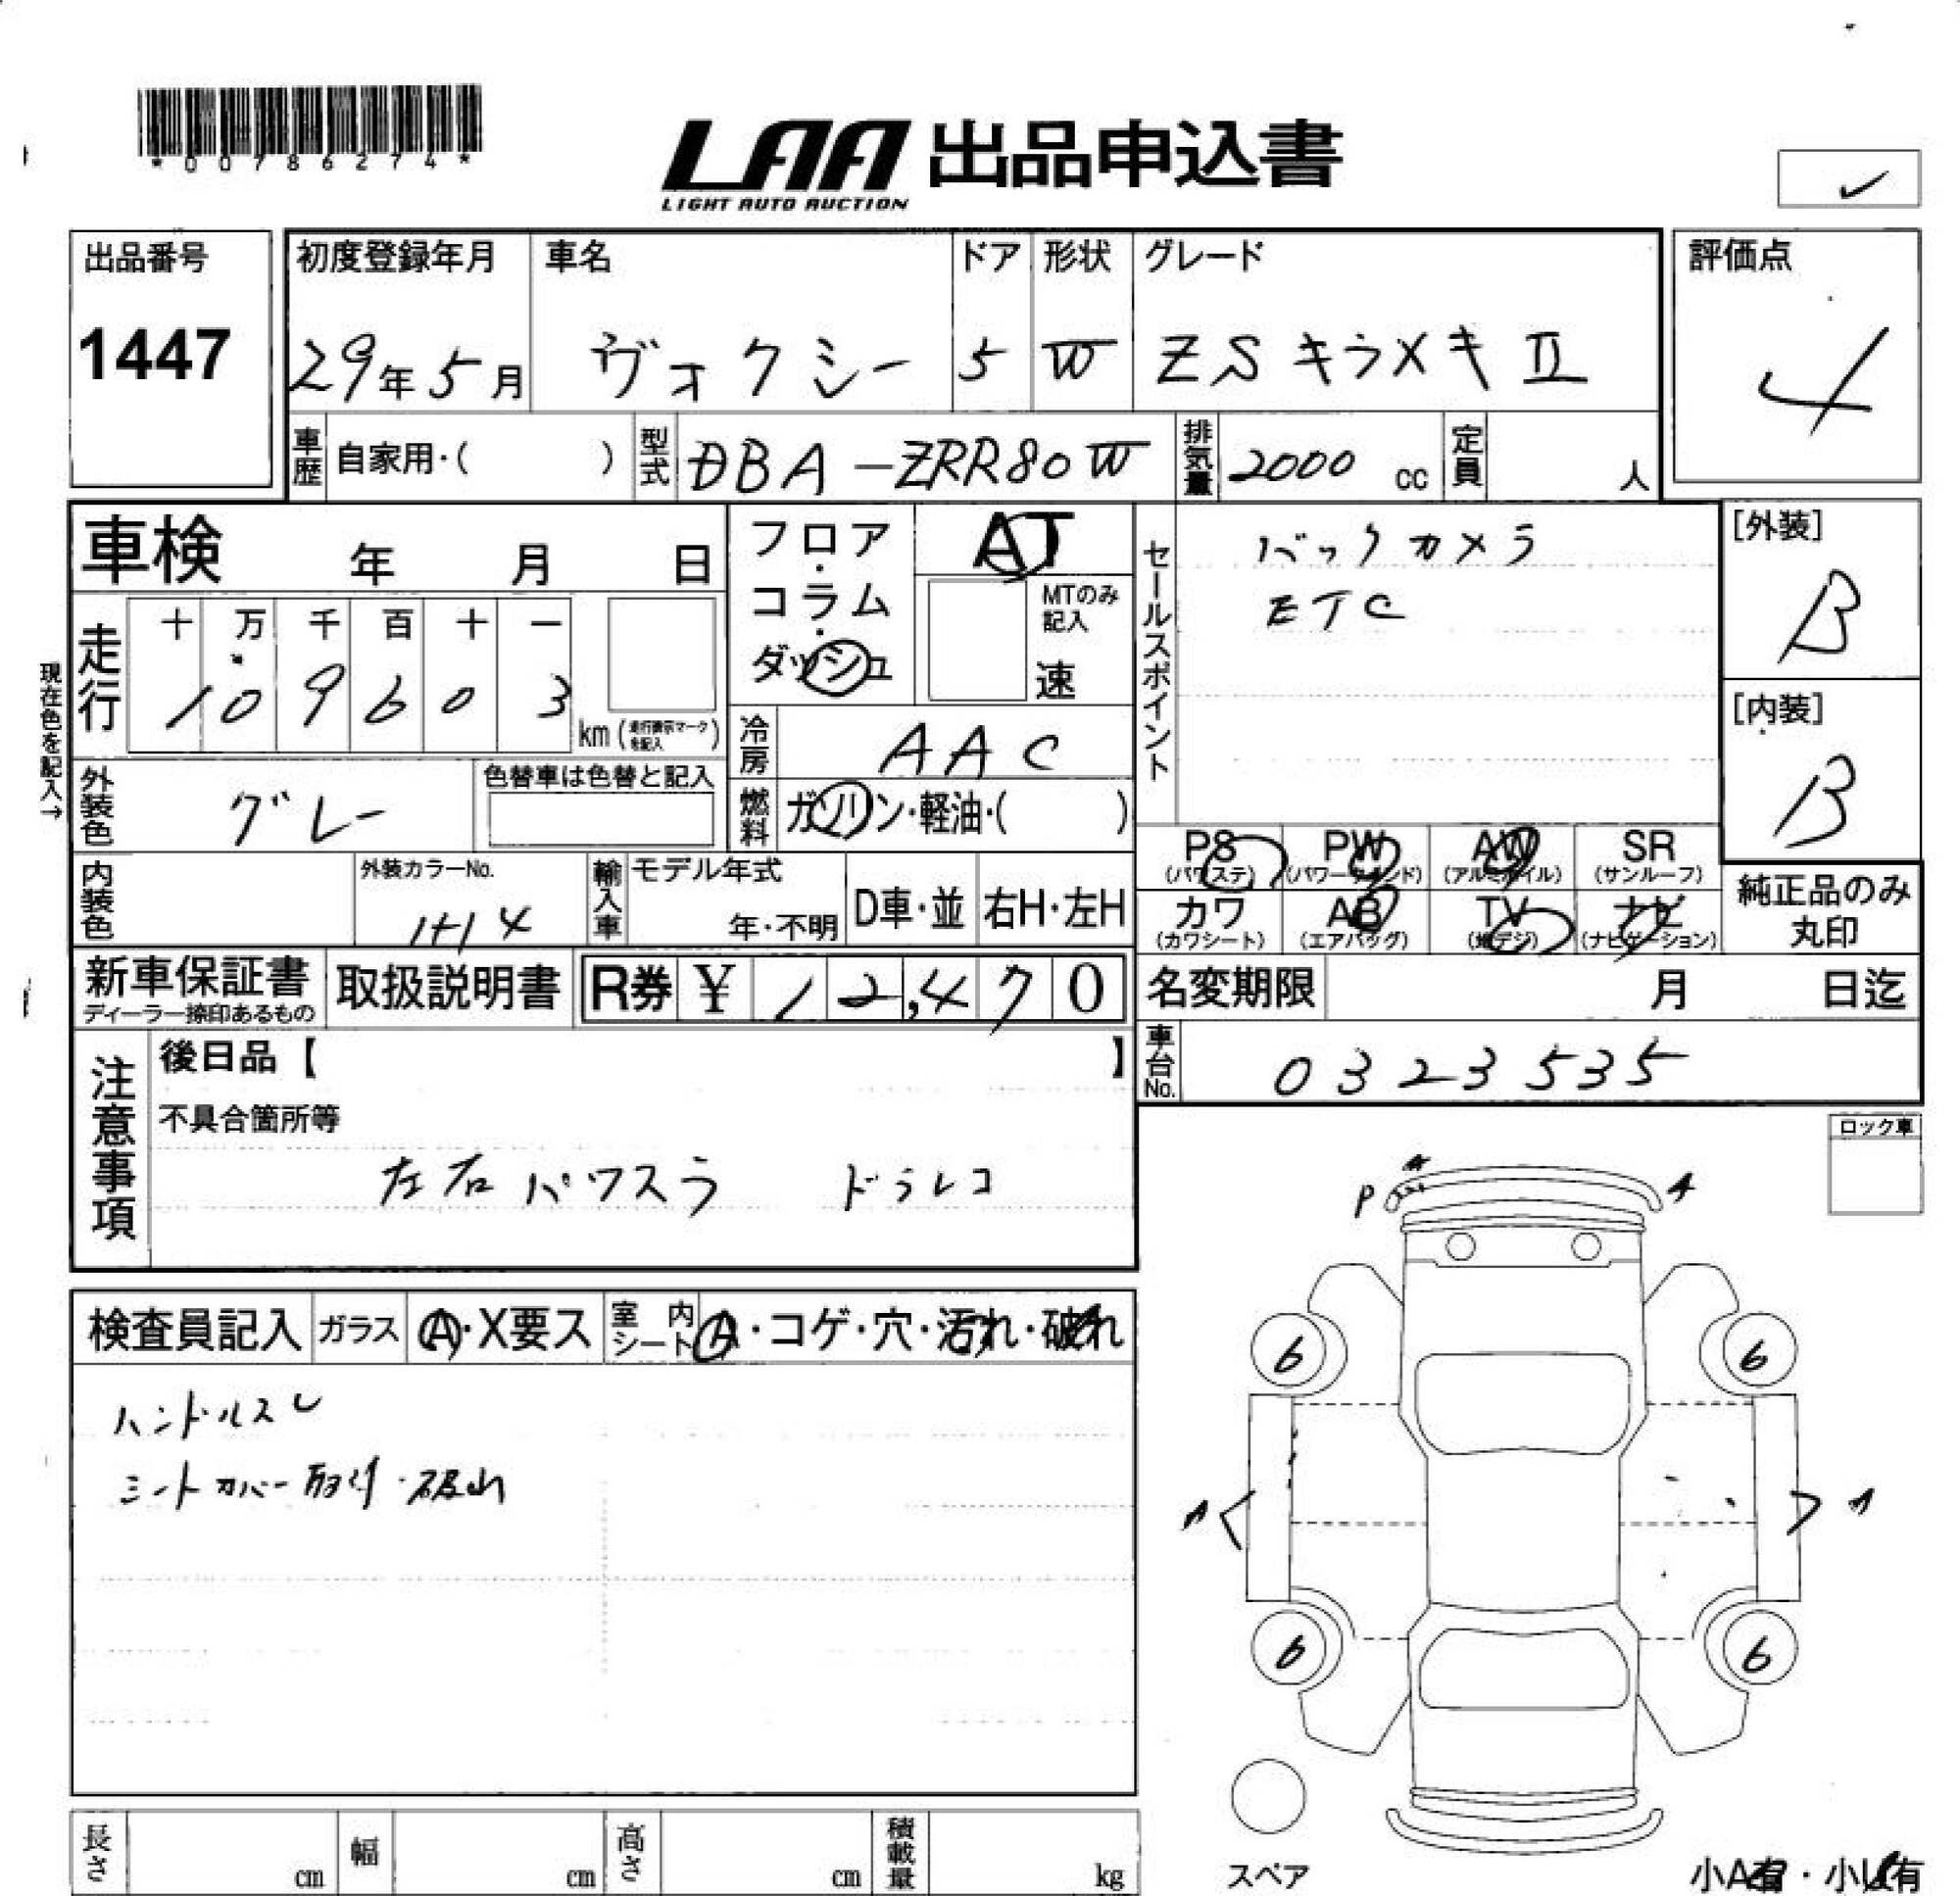 *00786274*
LAA 出品申込書
LIGHT AUTO AUCTION
出品番号
1447
初度登録年月
29年5月
車名
ヴォクシー
ドア
5
形状
W
グレード
ZSキラメキⅡ
評価点
4
車歴 自家用・( )
型式 DBA-ZRR80W
排気量 2000 cc
定員 人
車検 年 月 日
走行
十 万 千 百 十 一
1 0 9 6 0 3
km (走行表示マークを記入)
現在色を記入→
外装色 グレー
色替車は色替と記入
内装色
外装カラーNo.
フロア・コラム・ダッシュ
AT
MTのみ記入
速
冷房 AAC
燃料 ガソリン・軽油・( )
輸入車
モデル年式
年・不明
D車・並
右H・左H
セールスポイント
バックカメラ
ETC
[外装]
B
[内装]
B
PS (パワステ)
PW (パワーウィンド)
AW (アルミホイル)
SR (サンルーフ)
カワ (カワシート)
AB (エアバッグ)
TV (地デジ)
ナビ (ナビゲーション)
純正品のみ丸印
新車保証書
ディーラー捺印あるもの
取扱説明書
R券 ¥ 12,470
名変期限 月 日迄
車台No. 0323535
注意事項
後日品【 】
不具合箇所等
左右パワスラ ドラレコ
ロック車
検査員記入
ガラス A・X要ス
室内シート A・コゲ・穴・汚れ・破れ
ハンドルスレ
シートカバー取付・破山
P A A
6 6
A A
6 6
スペア
小A有・小U有
長さ cm
幅 cm
高さ cm
積載量 kg